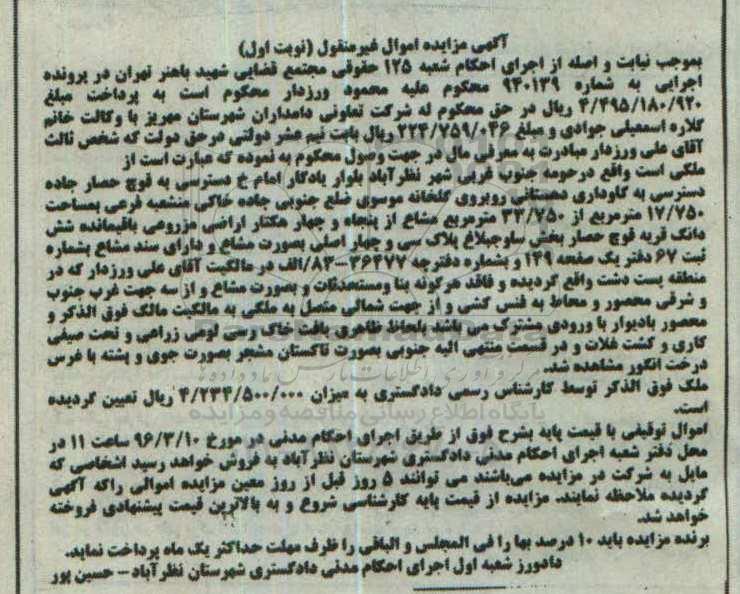 آگهی مزایده اموال غیرمنقول (نوبت اول)
بموجب نیابت و اصله از اجرای احکام شعبه ۱۲۵ حقوقی مجتمع قضایی شهید باهنر تهران در پرونده
اجرایی به شماره ۹۴۰۱۳۹ محکوم علیه محمود ورزدار محکوم است به پرداخت مبلغ
۴/۴۹۵/۱۸۰/۹۲۰ ریال در حق محکوم له شرکت تعاونی دامداران شهرستان مهریز با وکالت خانم
گلاره اسمعیلی جوادی و مبلغ ۲۲۴/۷۵۹/۰۴۶ ریال بابت نیم عشر دولتی درحق دولت که شخص ثالث
آقای علی ورزدار مبادرت به معرفی مال در جهت وصول محکوم به نموده که عبارت است از
ملکی است واقع درحومه جنوب غربی شهر نظرآباد بلوار یادگار امام خ دسترسی به قوچ حصار جاده
دسترسی به گاوداری دهستانی روبروی گلخانه موسوی ضلع جنوبی جاده خاکی منشعبه فرعی بمساحت
۱۷/۷۵۰ مترمربع از ۳۳/۷۵۰ مترمربع مشاع از پنجاه و چهار هکتار اراضی مزروعی باقیمانده شش
دانگ قریه قوچ حصار بخش ساوجبلاغ پلاک سی و چهار اصلی بصورت مشاع و دارای سند مشاع بشماره
ثبت ۶۷ دفتر یک صفحه ۱۴۹ و بشماره دفترچه ۳۶۴۷۷-۸۳/الف در مالکیت آقای علی ورزدار که در
منطقه پست دشت واقع گردیده و فاقد هرگونه بنا ومستحدثات و بصورت مشاع و از سه جهت غرب جنوب
و شرقی محصور و محاط به فنس کشی و از جهت شمالی متصل به ملکی به مالکیت مالک فوق الذکر و
محصور بادیوار با ورودی مشترک می باشد بلحاظ ظاهری بافت خاک رسی لومی زراعی و تحت صیفی
کاری و کشت غلات و در قسمت منتهی الیه جنوبی بصورت تاکستان مشجر بصورت جوی و پشته با غرس
درخت انگور مشاهده شد.
ملک فوق الذکر توسط کارشناس رسمی دادگستری به میزان ۴/۲۳۴/۵۰۰/۰۰۰ ریال تعیین گردیده
است.
اموال توقیفی با قیمت پایه بشرح فوق از طریق اجرای احکام مدنی در مورخ ۹۶/۳/۱۰ ساعت ۱۱ در
محل دفتر شعبه اجرای احکام مدنی دادگستری شهرستان نظرآباد به فروش خواهد رسید اشخاصی که
مایل به شرکت در مزایده می‌باشند می توانند ۵ روز قبل از روز معین مزایده اموالی راکه آگهی
گردیده ملاحظه نمایند. مزایده از قیمت پایه کارشناسی شروع و به بالاترین قیمت پیشنهادی فروخته
خواهد شد.
برنده مزایده باید ۱۰ درصد بها را فی المجلس و الباقی را ظرف مهلت حداکثر یک ماه پرداخت نماید.
دادورز شعبه اول اجرای احکام مدنی دادگستری شهرستان نظرآباد - حسین پور
پایگاه اطلاع رسانی مناقصه و مزایده